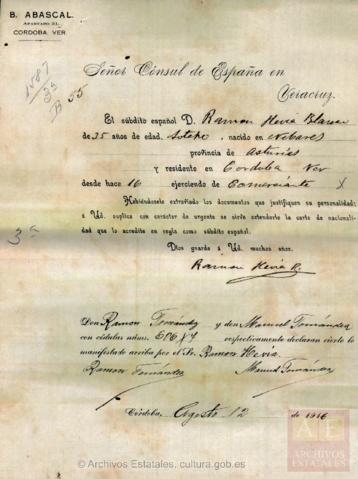 B. ABASCAL.
APARTADO 21.
CORDOBA VER
1887
33
B 55
Señor Cónsul de España en
Veracruz.
El súbdito español D. Ramon Hevia
de 35 años de edad, Soltero, nacido en
provincia de Asturias
y residente en Cordoba Ver
desde hace 16 ejerciendo de Comerciante X
Habiéndosele extraviado los documentos que justifiquen su personalidad;
á Ud. suplica con carácter de urgente se sirva extenderle la carta de nacionali-
dad que lo acredite en regla como súbdito español.
3ª
Dios guarde á Ud. muchos años.
Ramon Hevia
Don Ramon Fernandez y don Manuel Fernandez
con cédulas núms. respectivamente declaran cierto lo
manifestado arriba por el Sr. Ramon Hevia.
Ramon Fernandez Manuel Fernandez
Córdoba, Agosto 12 de 1916
AE
ARCHIVOS
ESTATALES
© Archivos Estatales. cultura.gob.es